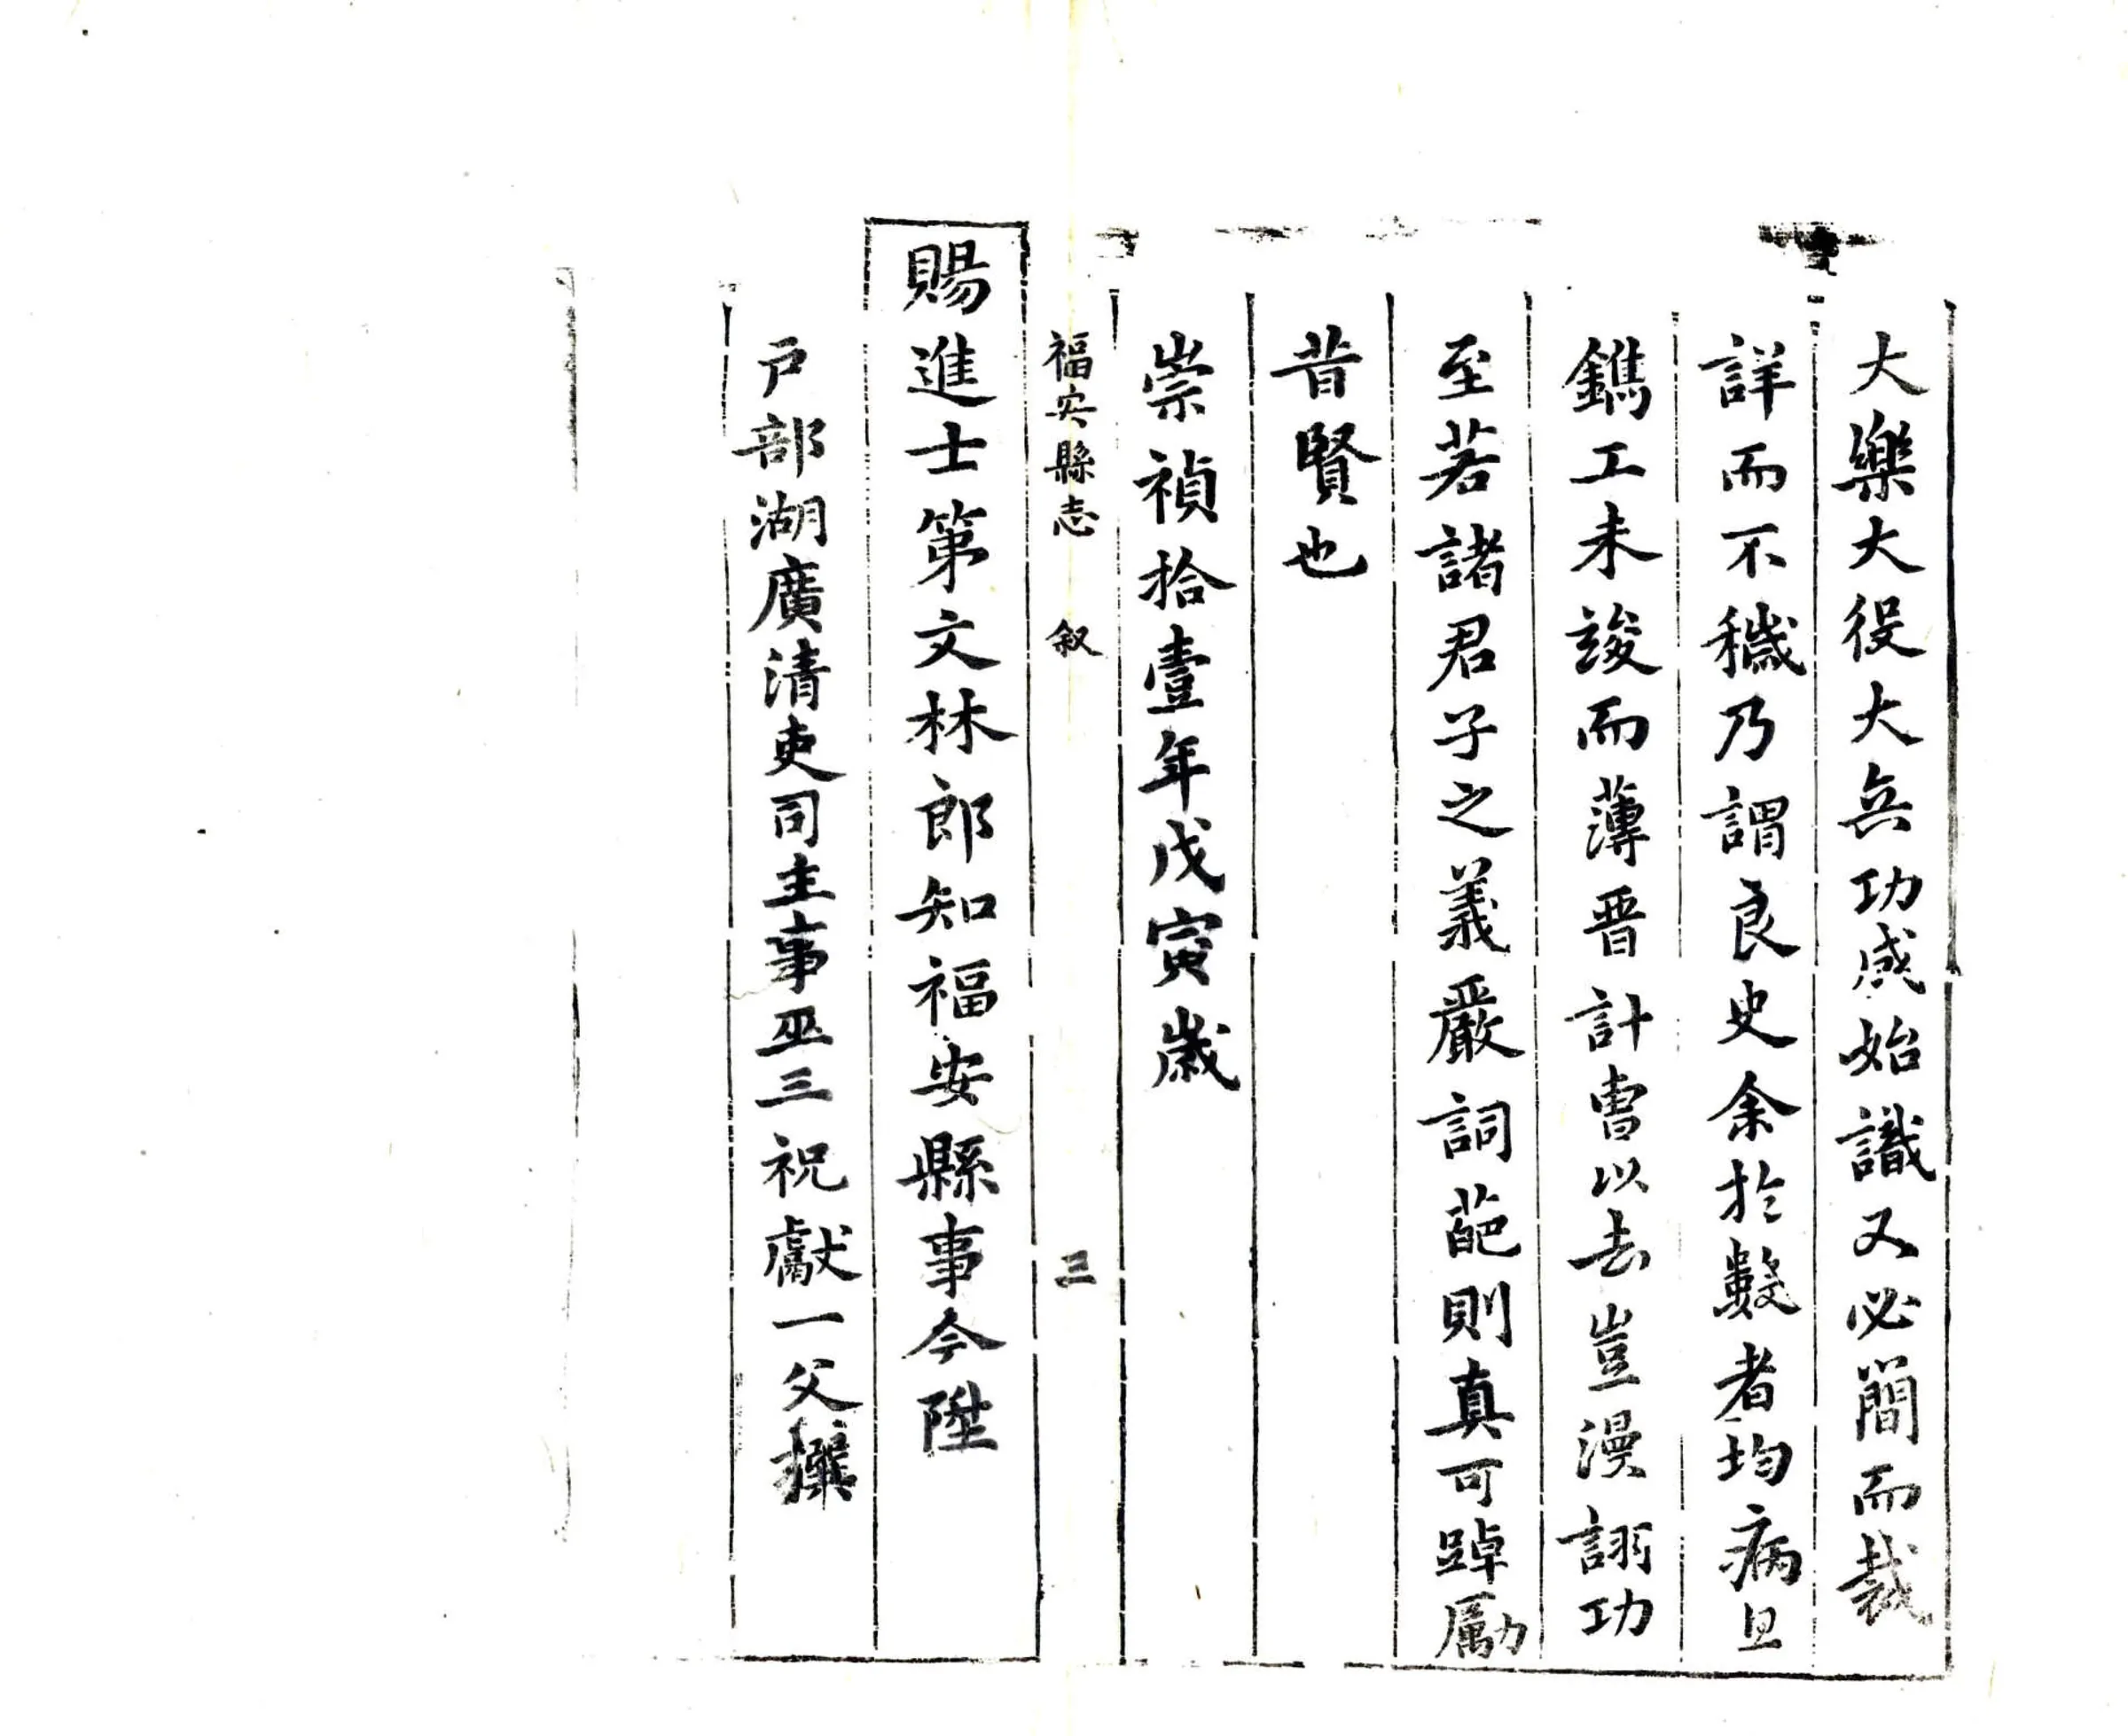 大樂大役大兵功感始識又必簡而裁
詳而不穢乃謂良史余於數者均病且
鐫工未竣而薄晋計曹以去豈漫詡功
至若諸君子之義嚴詞葩則真可踔厲
昔賢也
崇禎拾壹年戊寅歲
福安縣志 叙 三
賜進士第文林郎知福安縣事今陞
戶部湖廣清吏司主事巫三祝獻一父撰